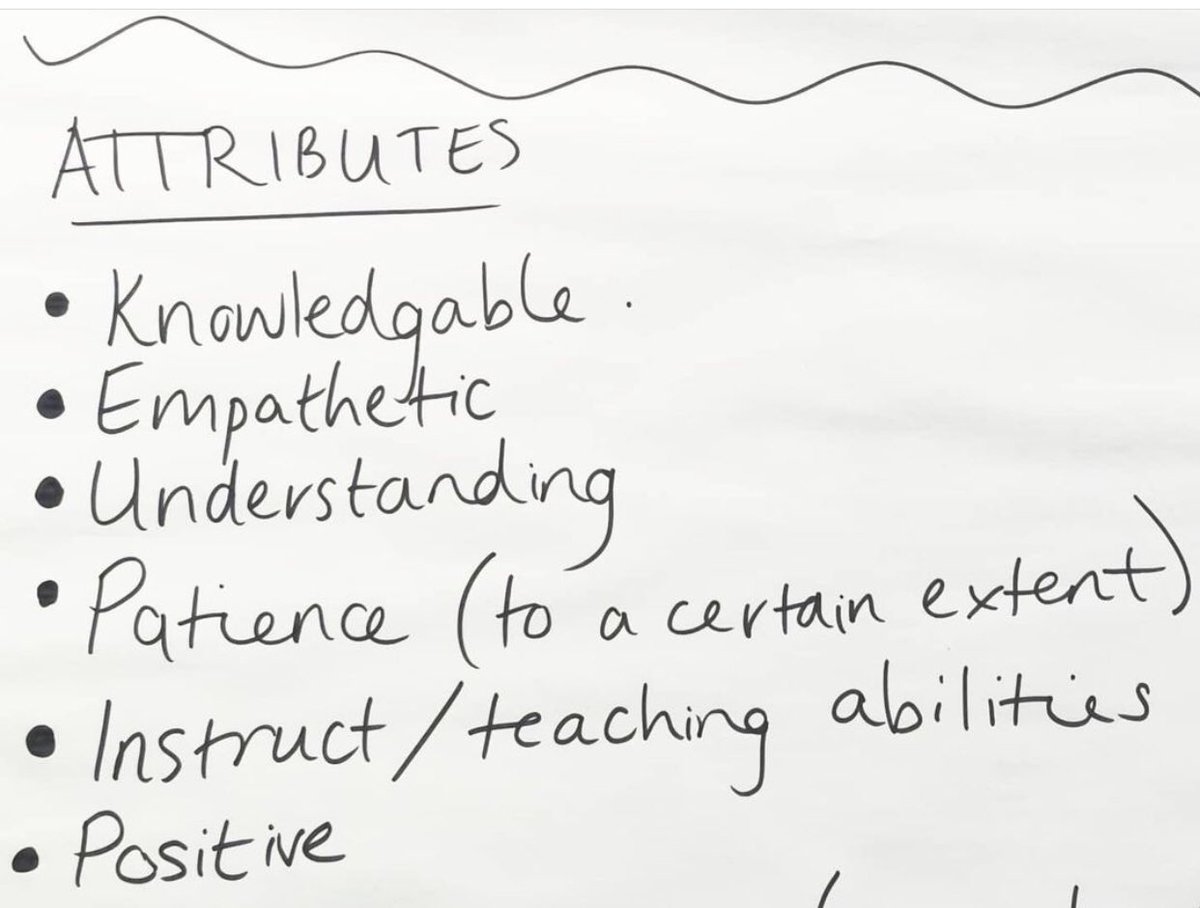 ATTRIBUTES
• Knowledgable .
• Empathetic
• Understanding
• Patience (to a certain extent)
• Instruct/teaching abilities
• Positive